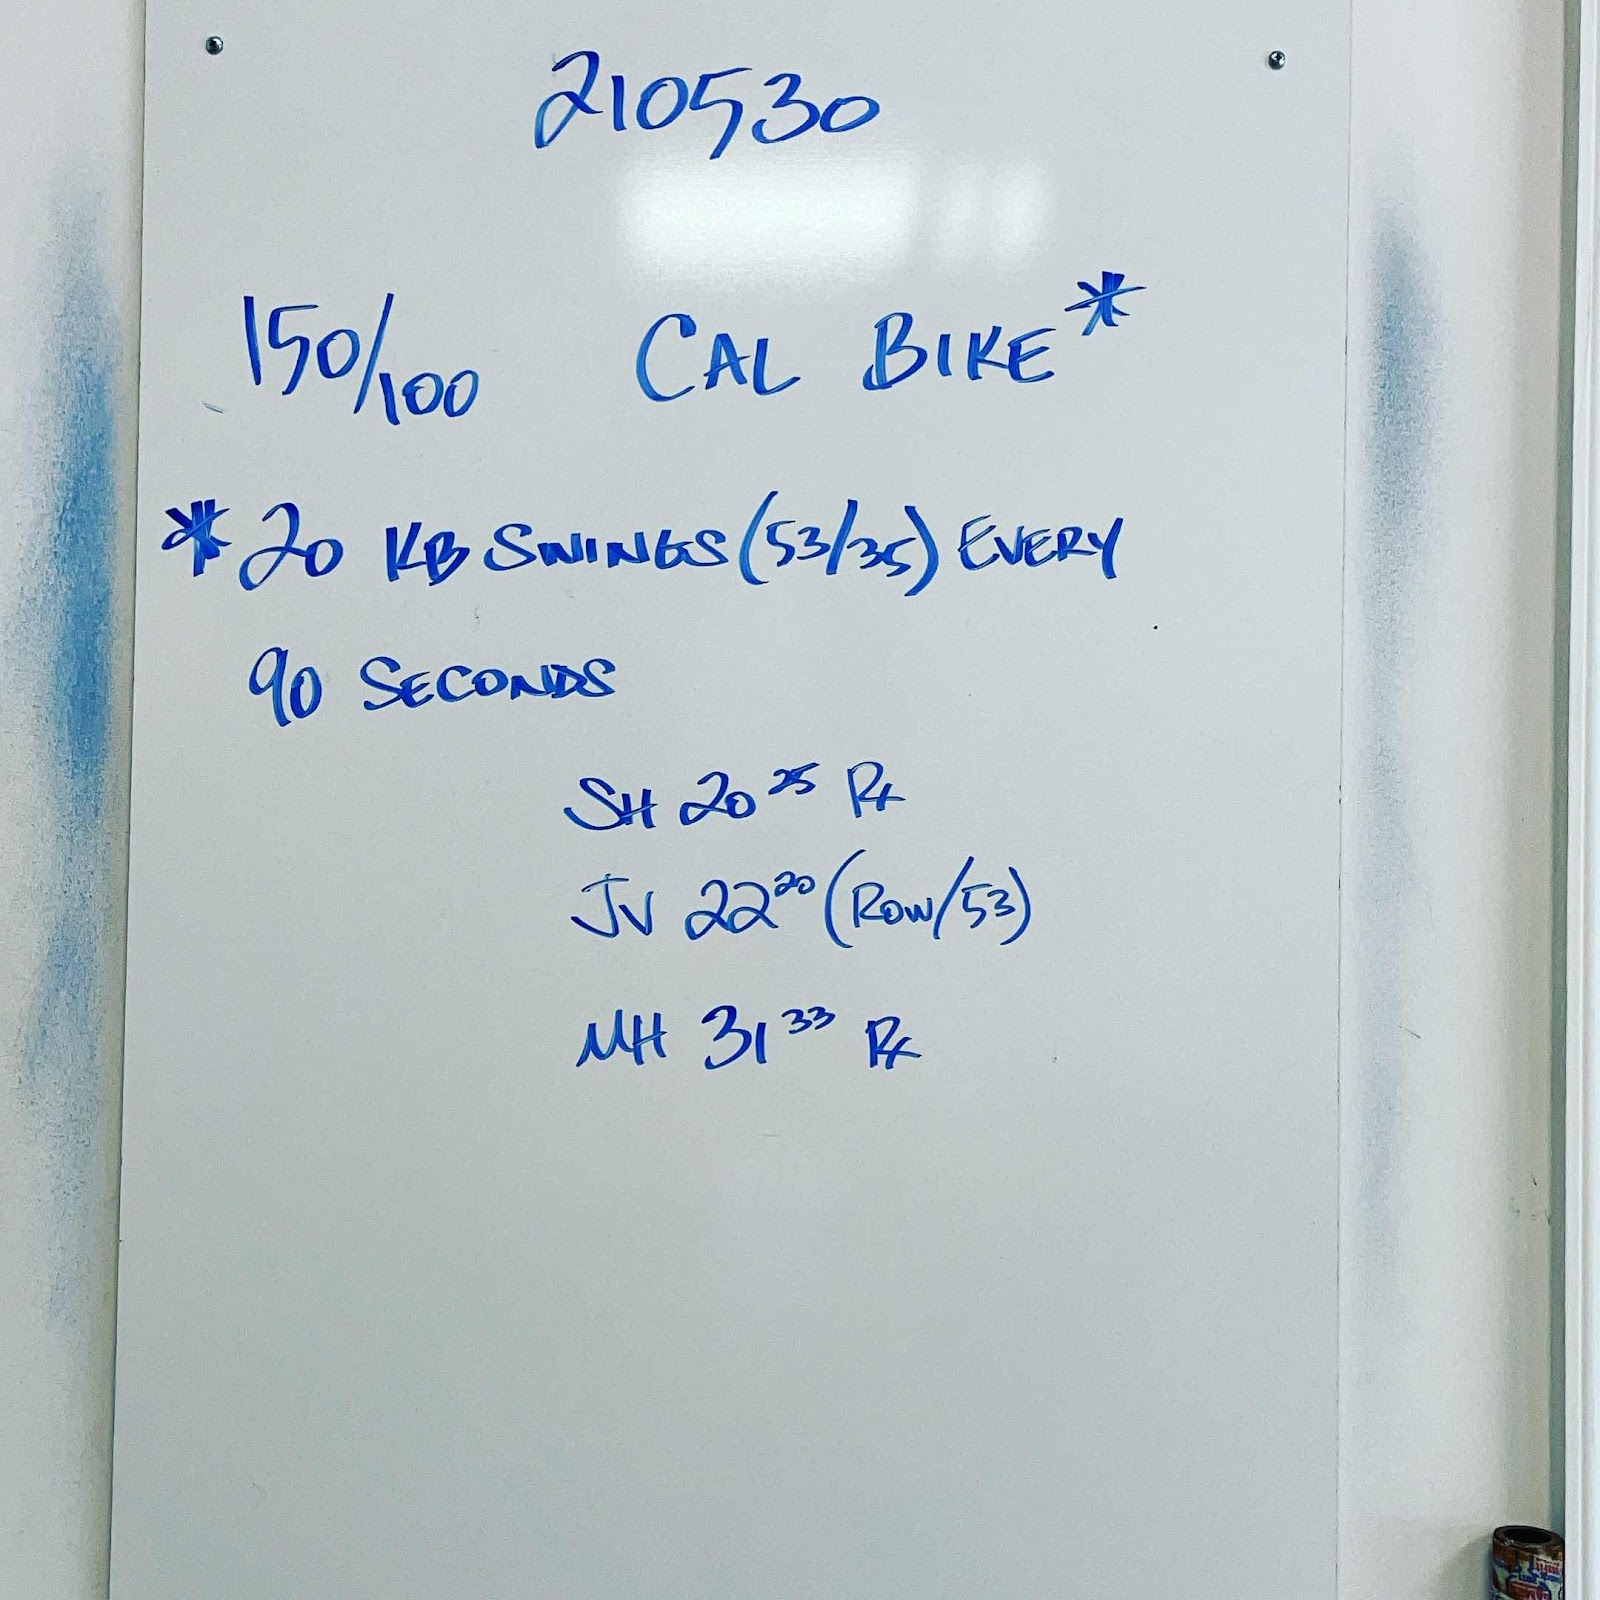 210530
150/100 CAL BIKE*
*20 KB SWINGS (53/35) EVERY
90 SECONDS
SH 20 25 Rx
JV 22 20 (ROW/53)
MH 31 33 Rx